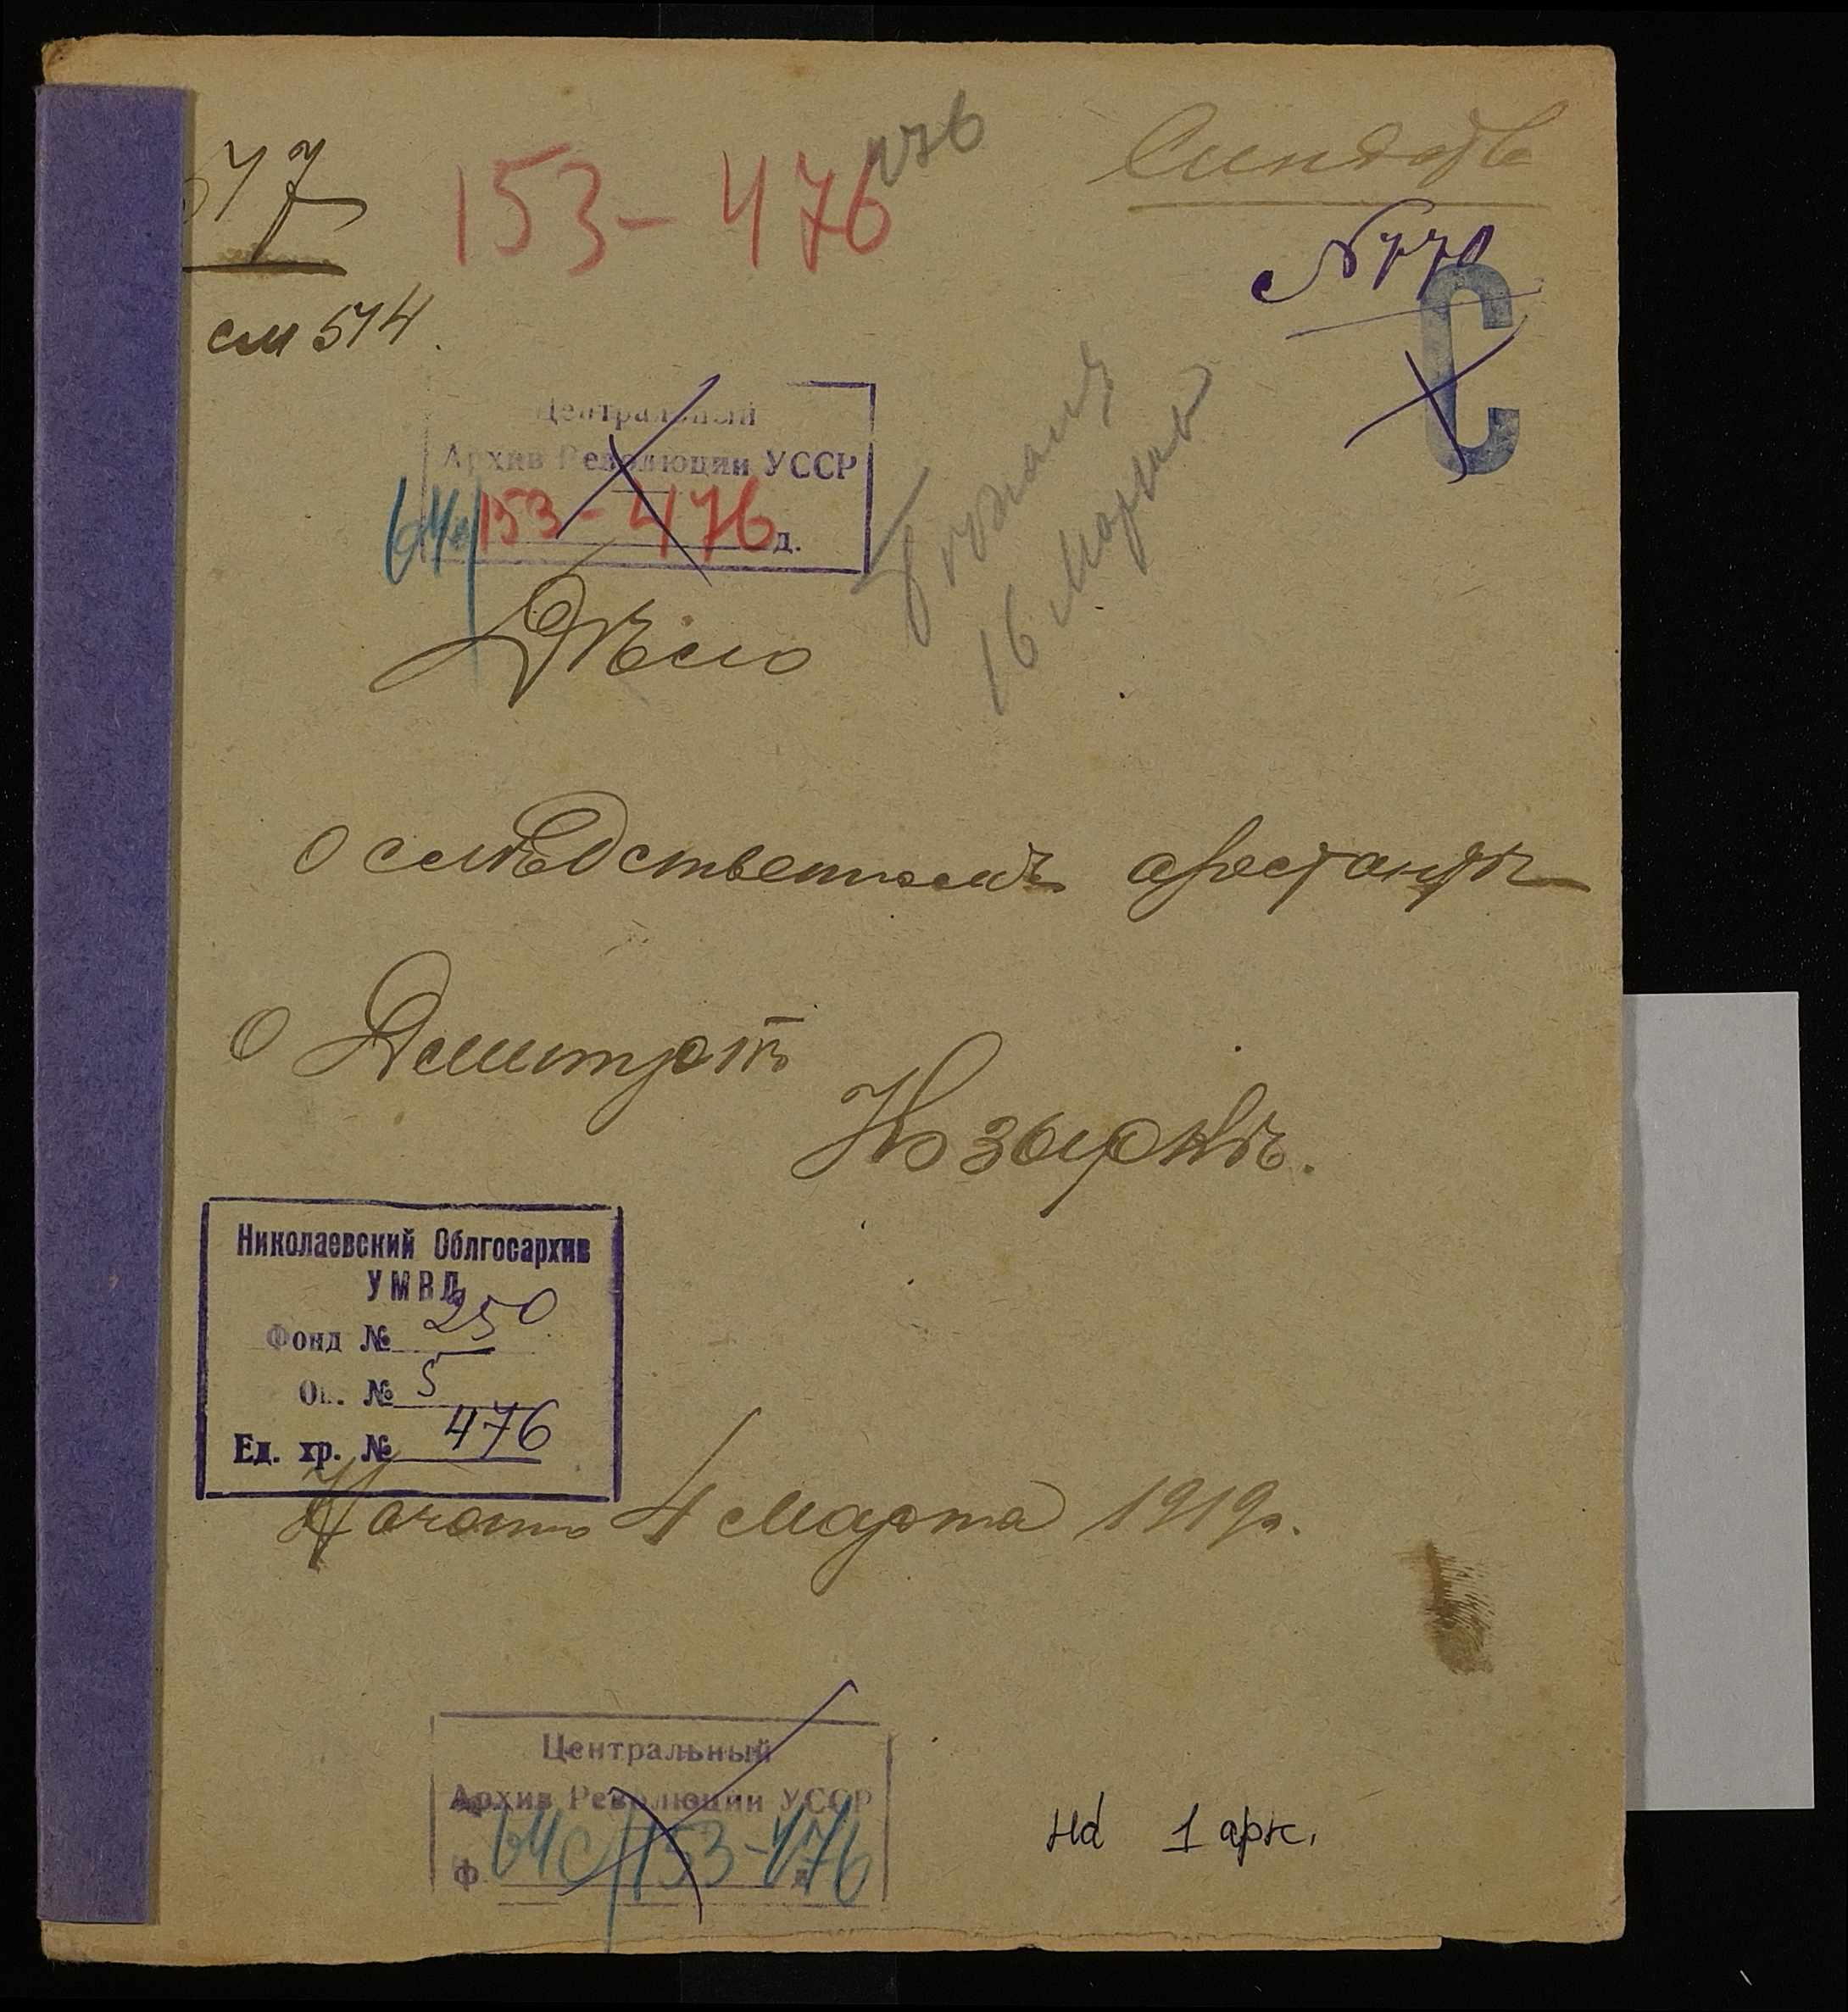 153-476
см 514.
С
Центральный
Архив Революции УССР
153-476 д.
16 Марта
Дѣло
О слѣдственномъ арестантѣ
О Дмитрѣ
Козырѣ.
Николаевский Облгосархив
УМВД
Фонд № 250
Оп. № 5
Ед. хр. № 476
Начато 4 Марта 1919 г.
Центральный
Архив Революции УССР
ф 64с/153-476
на 1 арк.